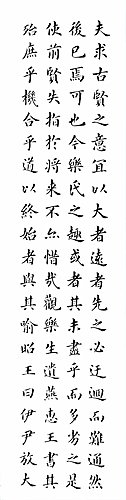 夫求古賢之意宜以大者遠者先之必迂迴而難通然
後已焉可也今樂氏之趣或者其未盡乎而多劣之是
使前賢失指於將來不亦惜哉觀樂生遺燕惠王書其
殆庶乎機合乎道以終始者與其喻昭王曰伊尹放大